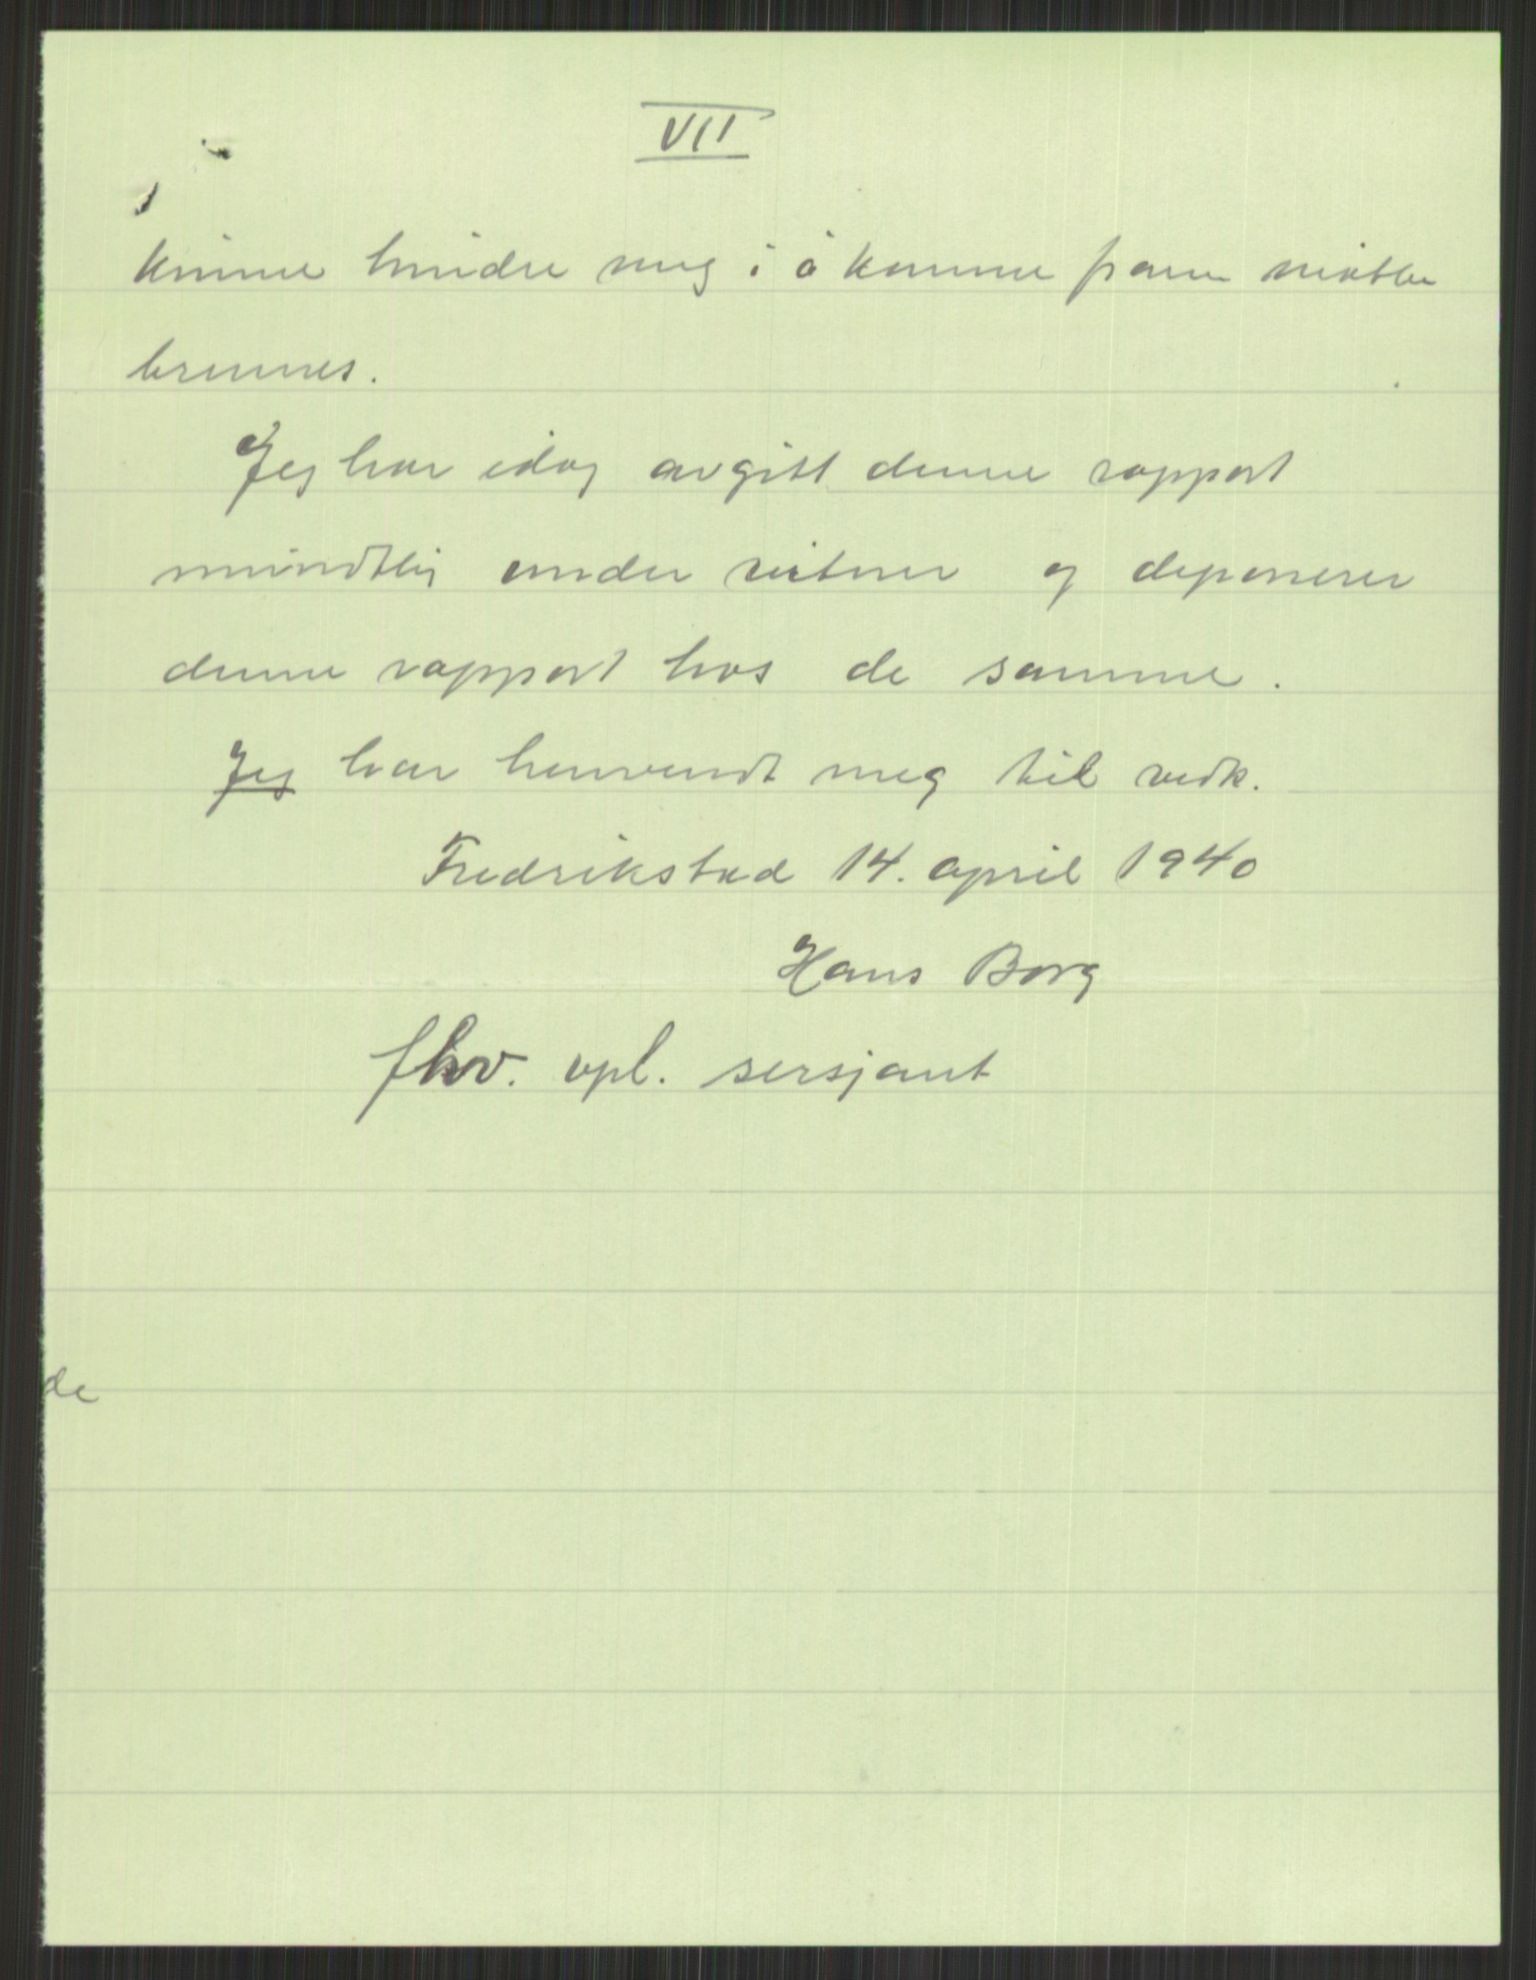 VII
kunne hindre meg i å komme fram måtte
brennes.
Jeg har idag avgitt denne rapport
mundtlig under vitner og deponerer
denne rapport hos de samme.
Jeg har henvendt meg til vedk.
Fredrikstad 14. april 1940
Hans Borg
fhv. vpl. sersjant
de